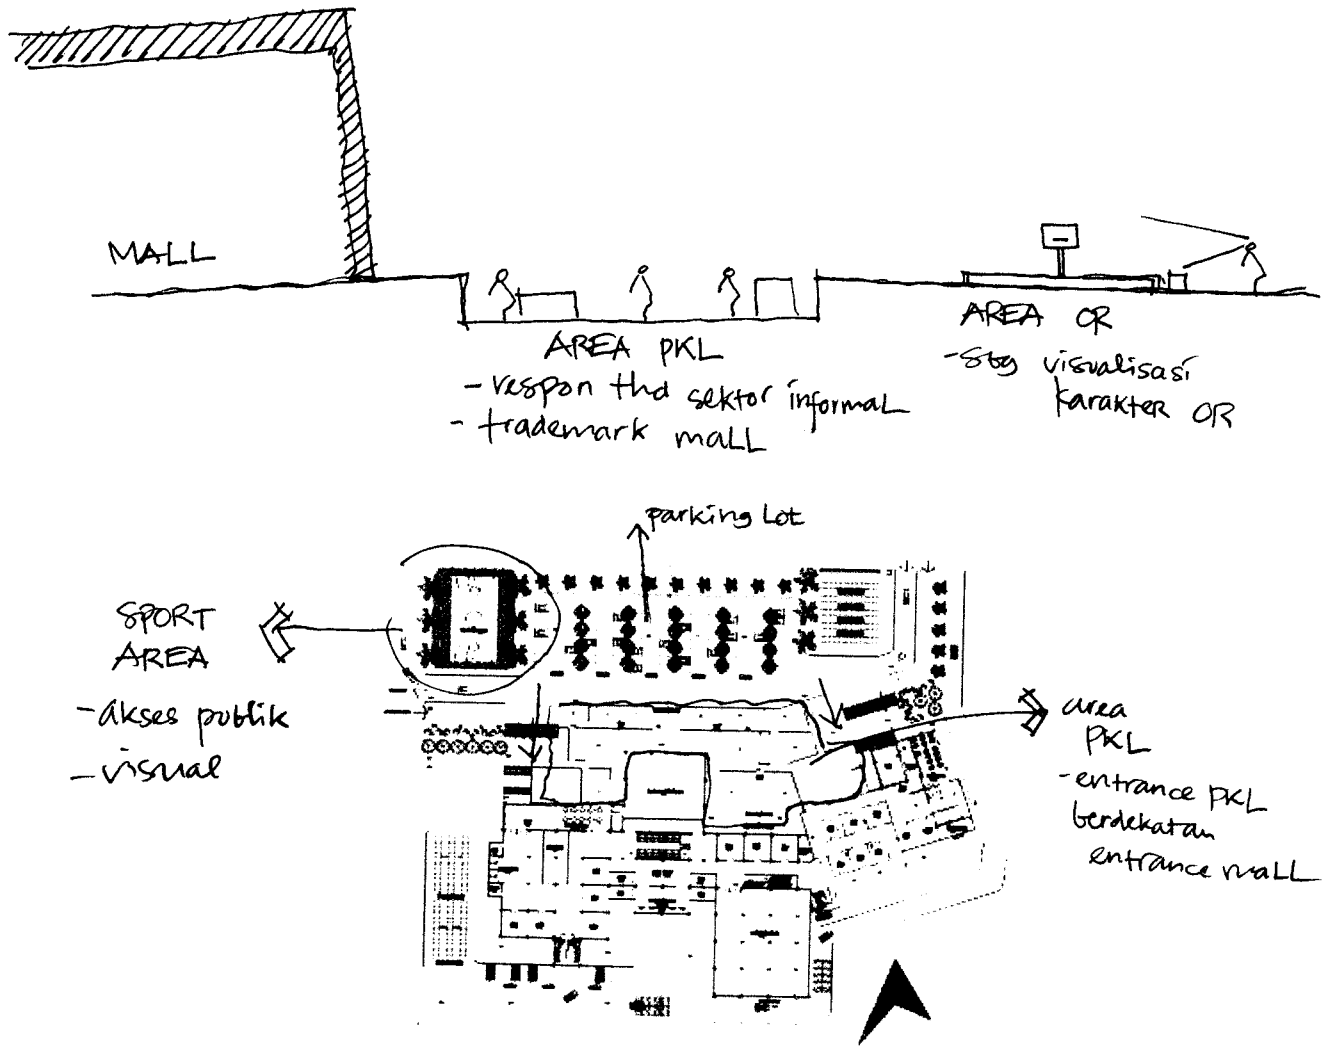 MALL
AREA PKL
- respon thd sektor informal
- trademark mall
AREA OR
- sbg visualisasi
karakter OR
parking lot
SPORT
AREA
- akses publik
- visual
area
PKL
- entrance PKL
berdekatan
entrance mall